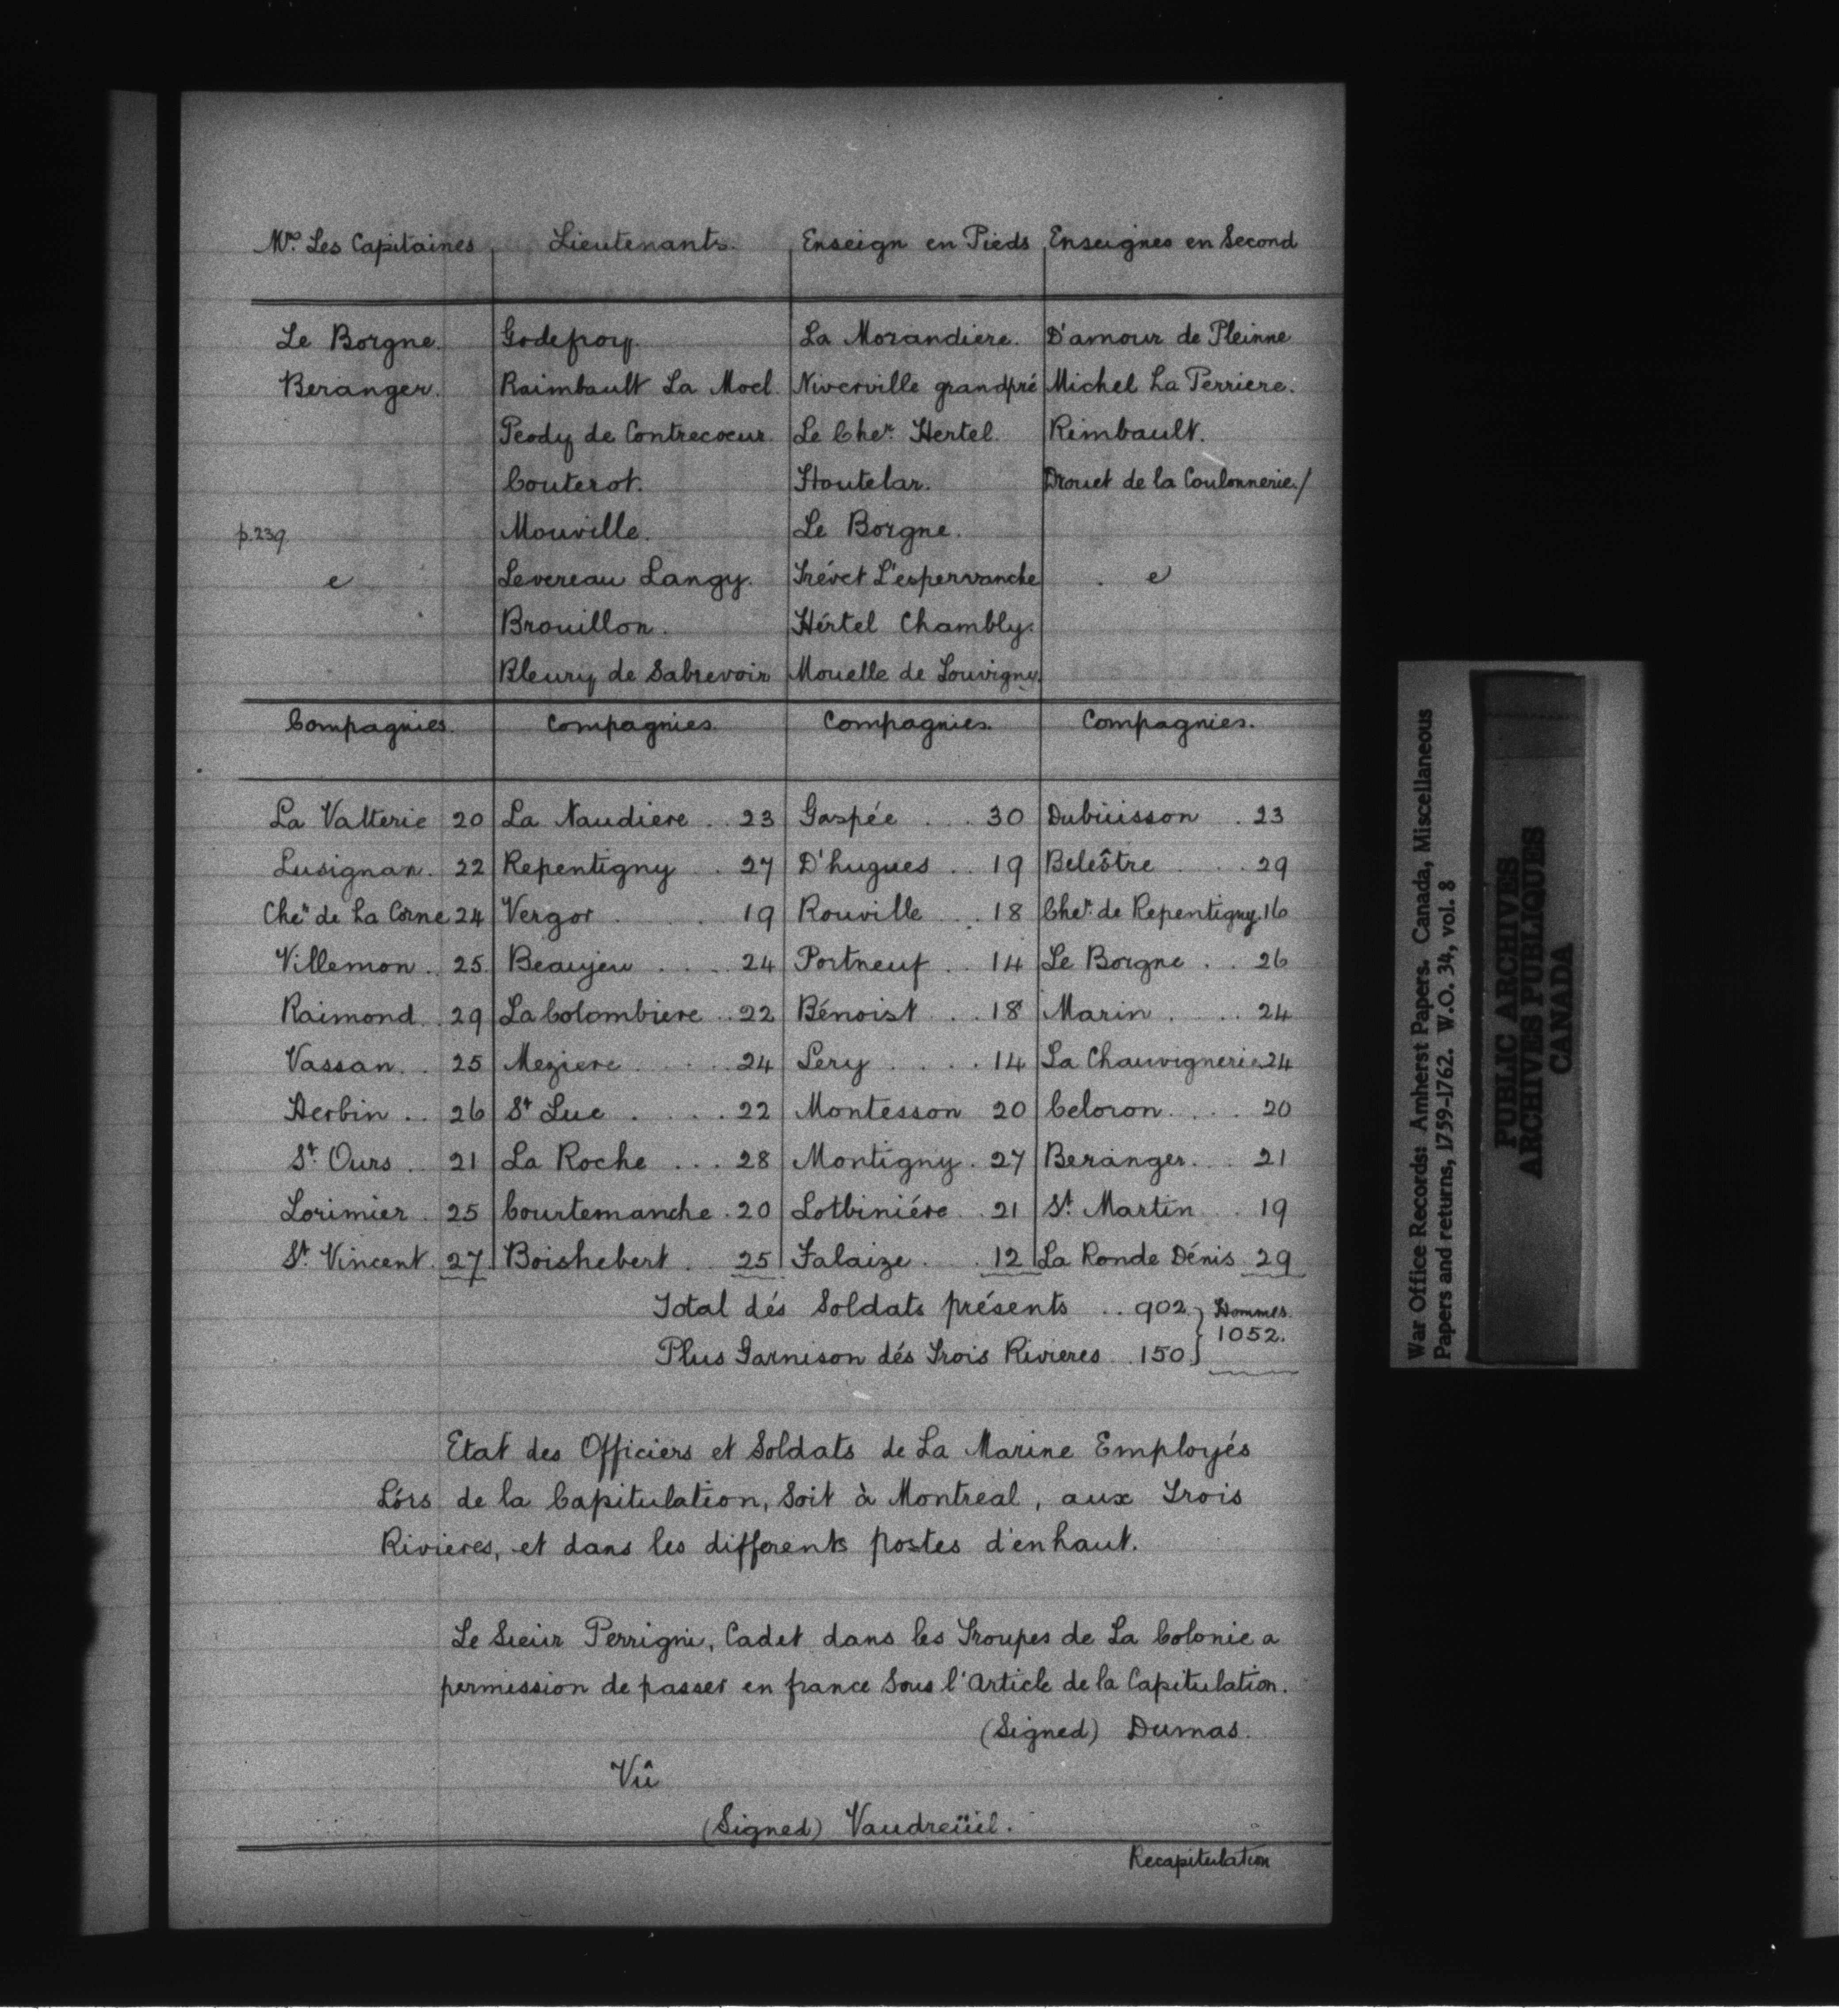 Mrs Les Capitaines Lieutenants. Enseign en Pieds Enseignes en Second
Le Borgne. Godefroy. La Morandiere. D'amour de Pleinne
Beranger. Raimbault La Mocl. Niverville grandpré Michel La Perriere.
Peody de Contrecoeur. Le Cher Hertel. Rimbault.
Couterot. Houtelar. Drouet de la Coulonnerie./
p.239. Mouville. Le Borgne.
e Levereau Langy. Trévet L'espervanche . e
Brouillon. Hértel Chambly.
Bleury de Sabrevoir Mouelle de Louvigny.
Compagnies. Compagnies. Compagnies. Compagnies.
La Valterie 20 La Naudiere . 23 Gaspée . . . 30 Dubüisson . 23
Lusignan. 22 Repentigny . 27 D'hugues . . 19 Belêstre . . . 29
Cher de La Corne 24 Vergor . . . 19 Rouville . . . 18 Cher de Repentigny. 16
Villemon . 25. Beaujeu . . . . 24 Portneuf . . 14 Le Borgne . . 26
Raimond . 29 La Colombiere . . 22 Bénoist . . . 18 Marin . . . . 24
Vassan . . 25 Meziere . . . . 24 Lery . . . . 14 La Chauvignerie. 24
Herbin . . 26 St Luc . . . . 22 Montesson 20 Celoron . . . . 20
St. Ours . 21 La Roche . . . 28 Montigny . 27 Beranger . . . 21
Lorimier . 25 Courtemanche . 20 Lotbiniére . . 21 St. Martin . . 19
St. Vincent . 27 Boishebert . . 25 Falaize . . . 12 La Ronde Dénis 29
Total dés Soldats présents . . 902 } Hommes.
Plus Garnison dés Trois Rivieres . . 150 } 1052.
Etat des Officiers et Soldats de La Marine Employés
Lórs de la Capitulation, Soit à Montreal, aux Trois
Rivieres, et dans les differents postes d'enhaut.
Le Sieur Perrigni, Cadet dans les Troupes de La Colonie a
permission de passer en france Sous l'Article de la Capitulation.
(Signed) Dumas.
Vû
(Signed) Vaudreüil.
Recapitulation
War Office Records: Amherst Papers. Canada, Miscellaneous
Papers and returns, 1759-1762. W.O. 34, vol. 8
PUBLIC ARCHIVES
ARCHIVES PUBLIQUES
CANADA